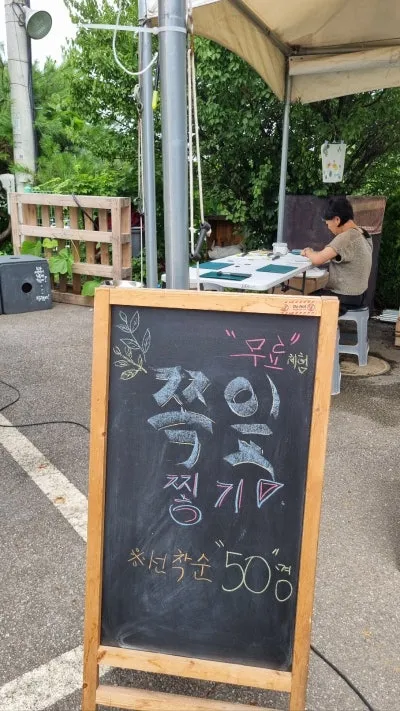 "무료" 체험
쪽잎
찧기!
※선착순 "50"명